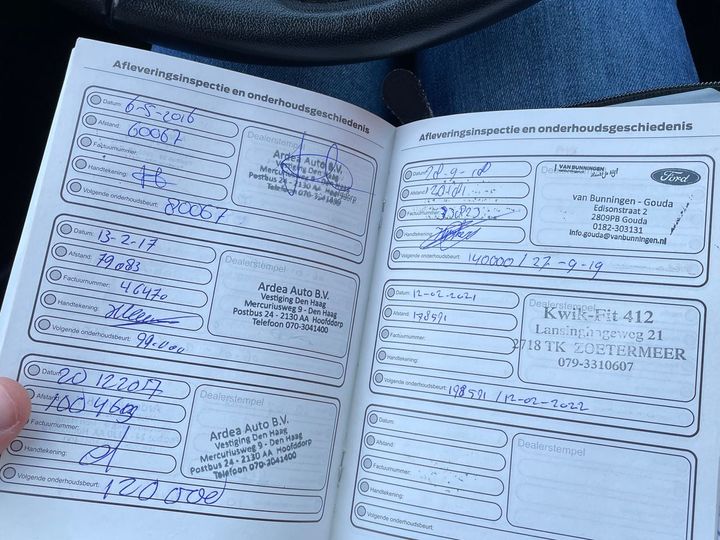 Afleveringsinspectie en onderhoudsgeschiedenis
Datum: 6-5-2016
Afstand: 60067
Factuurnummer:
Handtekening:
Volgende onderhoudsbeurt: 80067
Dealerstempel
Ardea Auto B.V.
Vestiging Den Haag
Mercuriusweg 9 - Den Haag
Postbus 24 - 2130 AA Hoofddorp
Telefoon 070-3041400
Datum: 13-2-17
Afstand: 79083
Factuurnummer: 46470
Handtekening:
Volgende onderhoudsbeurt: 99.000
Dealerstempel
Ardea Auto B.V.
Vestiging Den Haag
Mercuriusweg 9 - Den Haag
Postbus 24 - 2130 AA Hoofddorp
Telefoon 070-3041400
Datum: 20 12 2017
Afstand: 100460
Factuurnummer:
Handtekening:
Volgende onderhoudsbeurt: 120000
Dealerstempel
Ardea Auto B.V.
Vestiging Den Haag
Mercuriusweg 9 - Den Haag
Postbus 24 - 2130 AA Hoofddorp
Telefoon 070-3041400
Afleveringsinspectie en onderhoudsgeschiedenis
Datum:
Afstand:
Factuurnummer:
Handtekening:
Volgende onderhoudsbeurt: 140000 / 27-9-19
VAN BUNNINGEN
Ford
van Bunningen - Gouda
Edisonstraat 2
2809PB Gouda
0182-303131
info.gouda@vanbunningen.nl
Datum: 12-02-2021
Afstand: 178591
Factuurnummer:
Handtekening:
Volgende onderhoudsbeurt: 198591 / 12-02-2022
Kwik-Fit 412
Lansinghageweg 21
2718 TK ZOETERMEER
079-3310607
Datum:
Afstand:
Factuurnummer:
Handtekening:
Volgende onderhoudsbeurt:
Dealerstempel